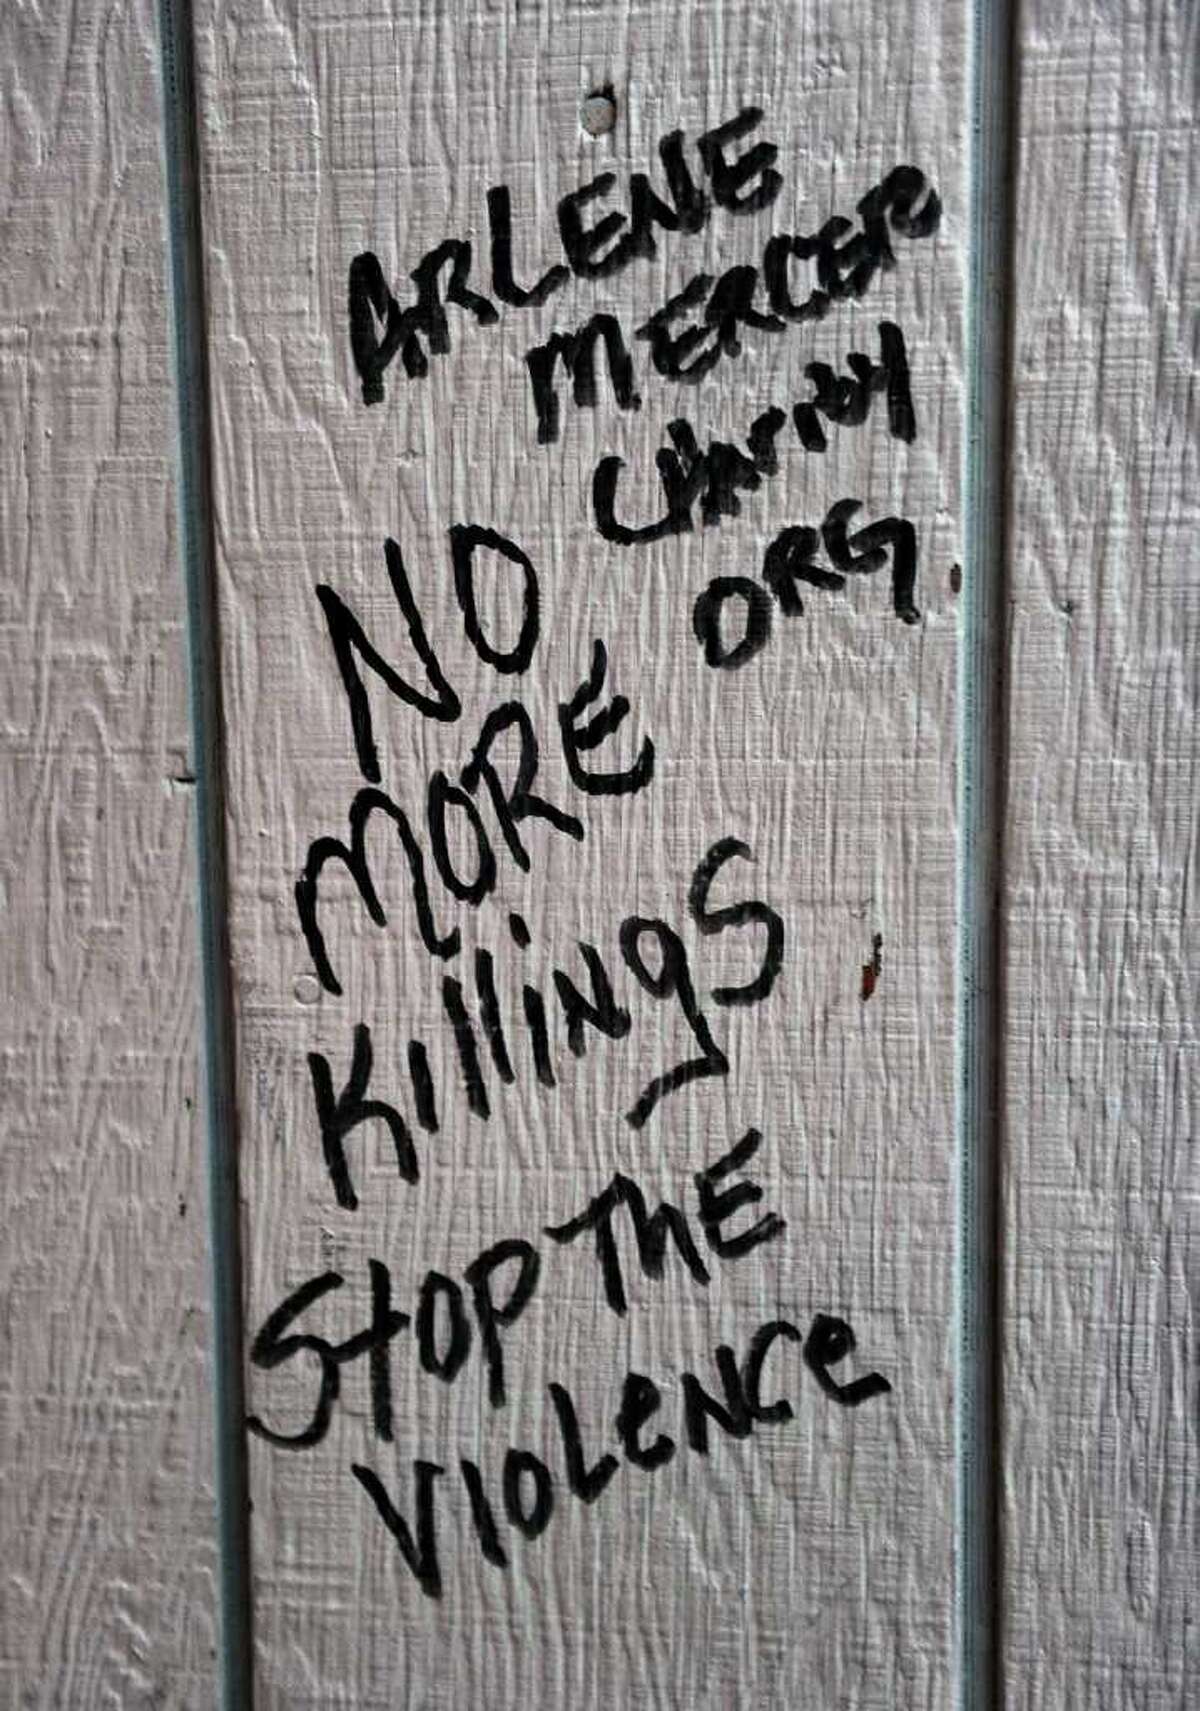 ARLENE
MERCER
CHARITY
ORG
NO
MORE
KillingS
StOP THE
VIOLeNCe